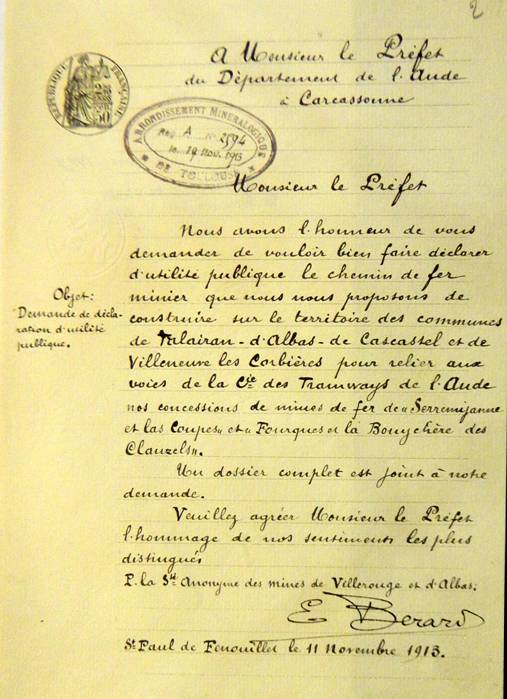 2
A Monsieur le Préfet
du Département de l'Aude
à Carcassonne
RÉPUBLIQUE FRANÇAISE
ARRONDISSEMENT MINÉRALOGIQUE
Reg A N° 2594
le 19 Nov. 1913
DE TOULOUSE
Monsieur le Préfet
Nous avons l'honneur de vous
demander de vouloir bien faire déclarer
d'utilité publique le chemin de fer
minier que nous nous proposons de
construire sur le territoire des communes
de Talairan - d'Albas - de Cascastel et de
Villeneuve les Corbières pour relier aux
voies de la Cie des Tramways de l'Aude
nos concessions de mines de fer de "Serremijanne
et las Coupes" et "Fourques et la Bouychère des
Clauzels".
Objet:
Demande de décla-
ration d'utilité
publique.
Un dossier complet est joint à notre
demande.
Veuillez agréer Monsieur le Préfet
l'hommage de nos sentiments les plus
distingués
P. la Sté Anonyme des mines de Villerouge et d'Albas:
E Berard
St Paul de Fenouillet le 11 novembre 1913.